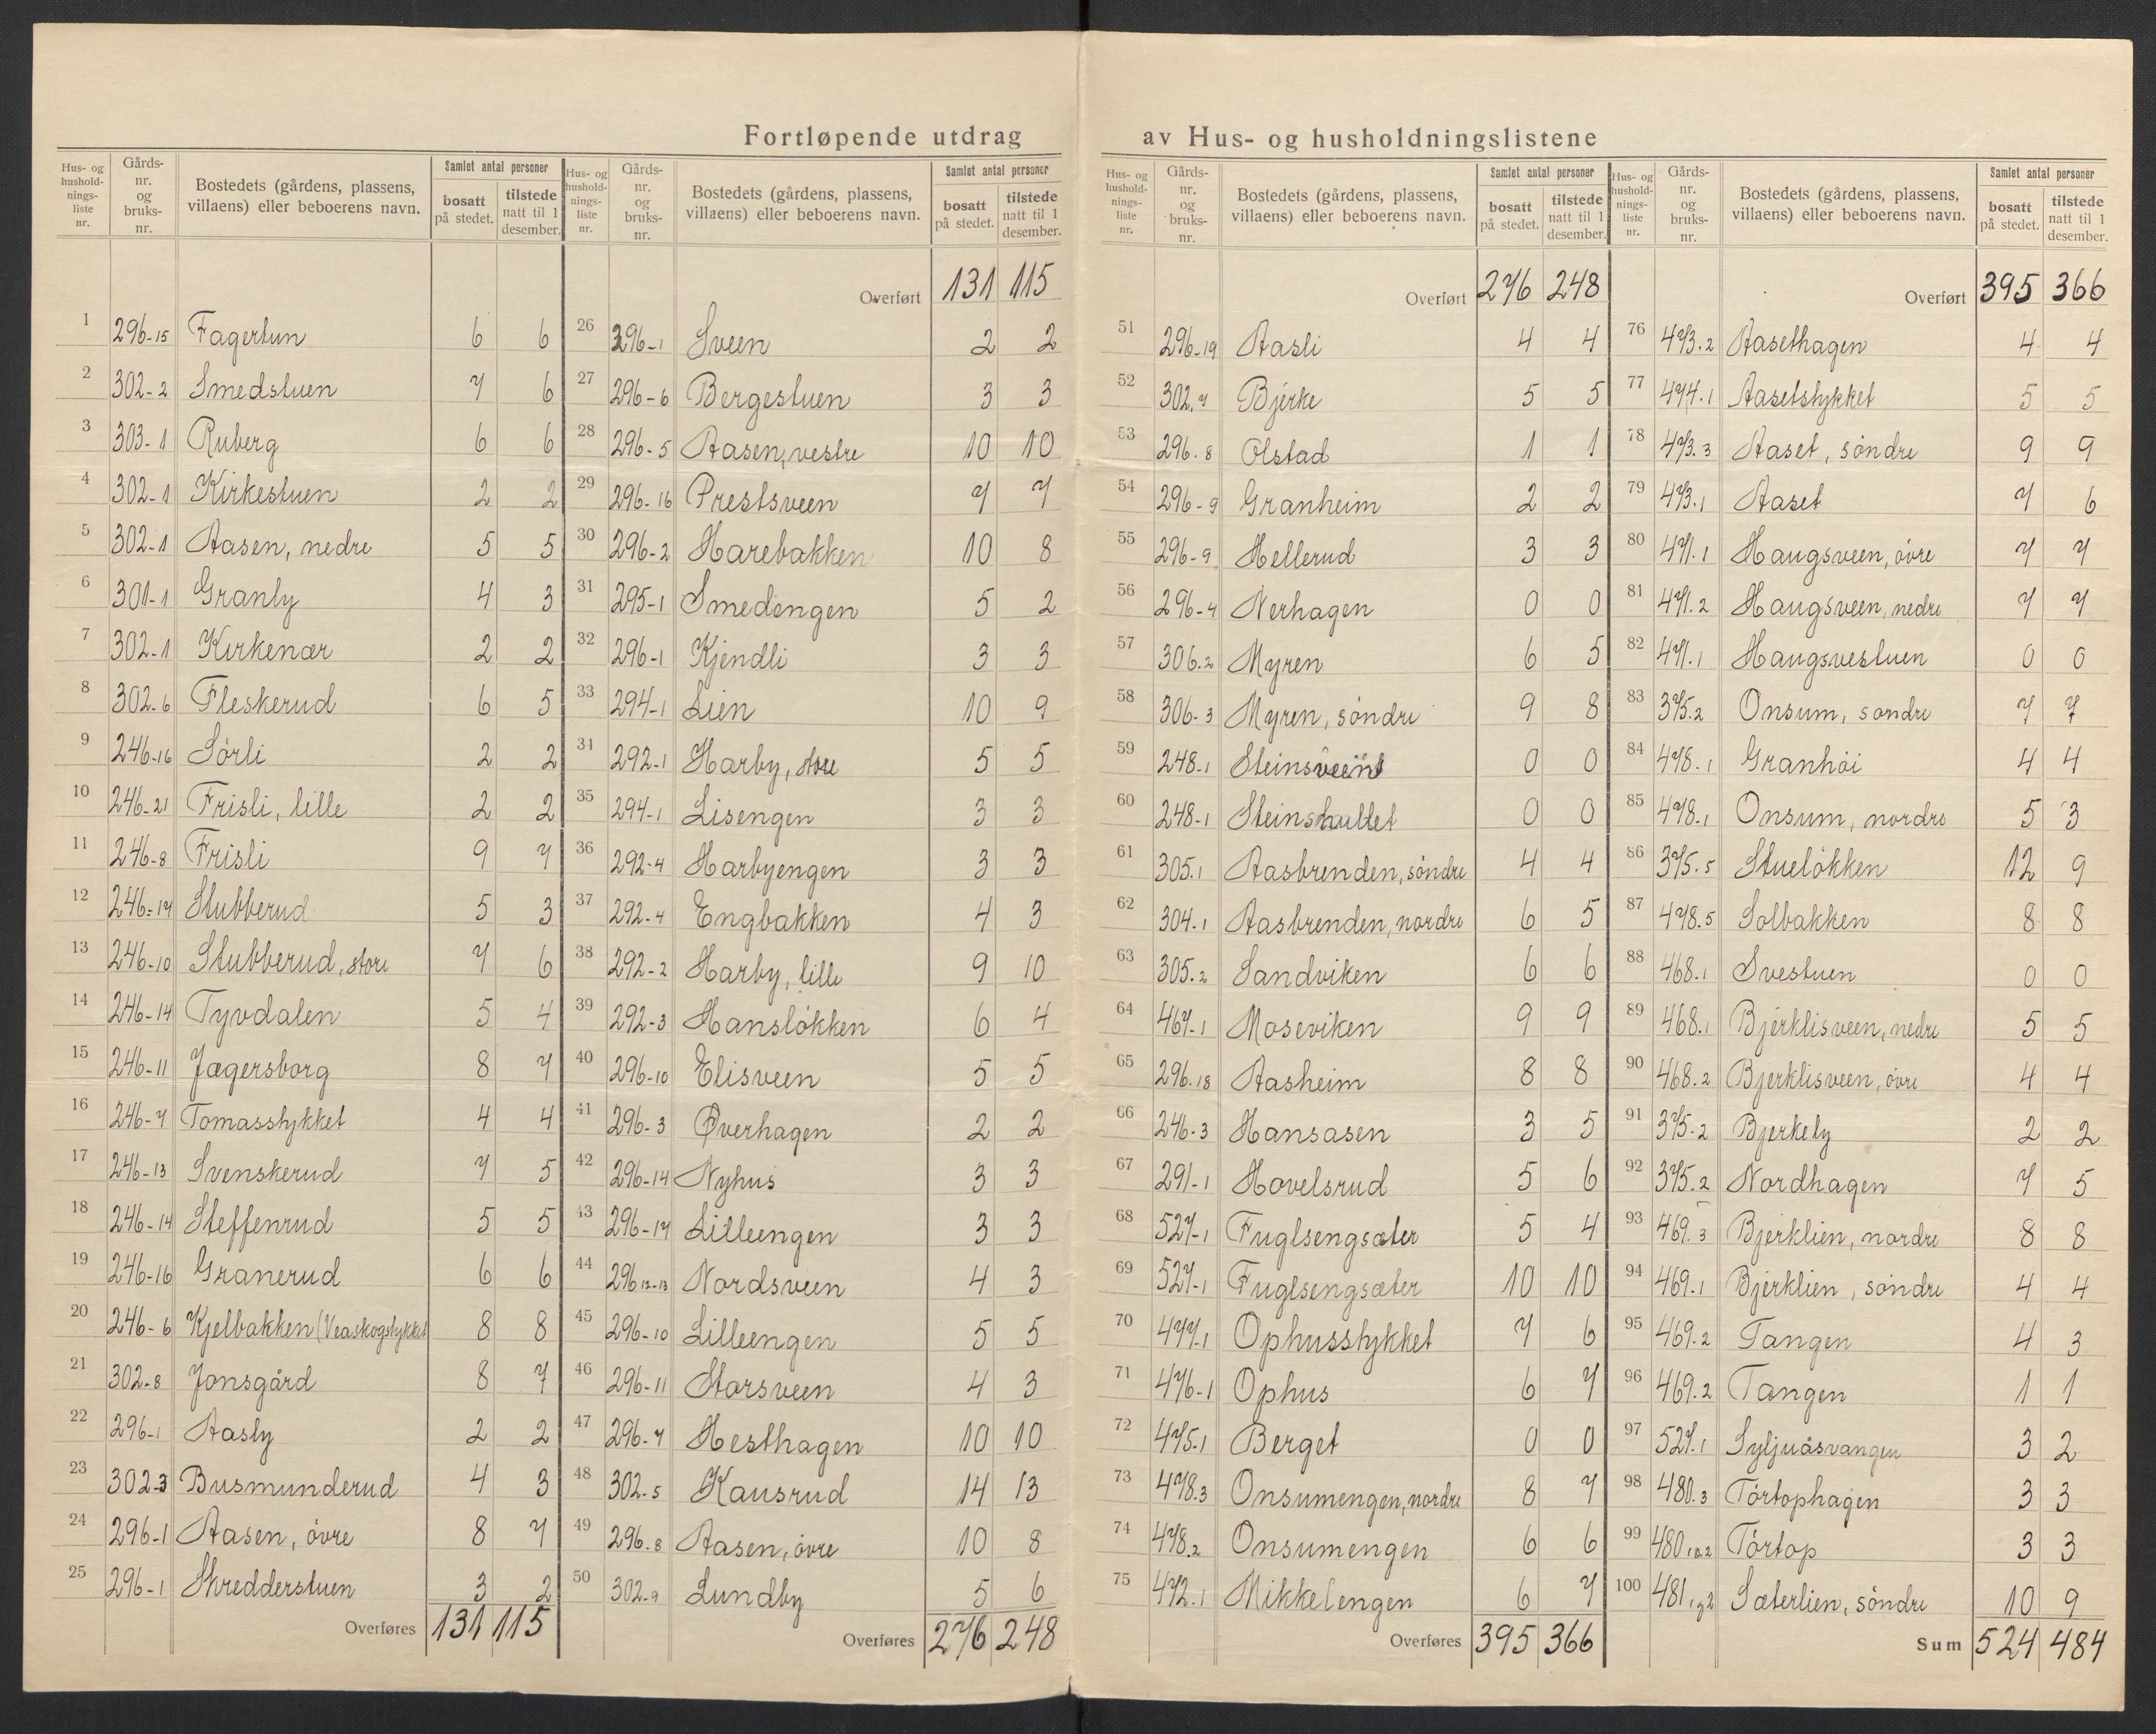 Fortløpende utdrag av Hus- og husholdningslistene
Hus- og husholdnings-liste nr. | Gårds-nr. og bruks-nr. | Bostedets (gårdens, plassens, villaens) eller beboerens navn. | Samlet antal personer bosatt på stedet. | tilstede natt til 1 desember.
1 296-15 Fagertun 6 6
2 302-2 Smedstuen 7 6
3 303-1 Ruberg 6 6
4 302-1 Kirkestuen 2 2
5 302-1 Aasen, nedre 5 5
6 301-1 Granly 4 3
7 302-1 Kirkenær 2 2
8 302-6 Fleskerud 6 5
9 246-16 Sörli 2 2
10 246-21 Frisli, lille 2 2
11 246-8 Frisli 9 7
12 246-17 Stubberud 5 3
13 246-10 Stubberud, store 7 6
14 246-14 Tyvdalen 5 4
15 246-11 Jægersborg 8 7
16 246-7 Tomasstykket 4 4
17 246-13 Svenskerud 7 5
18 246-14 Steffenrud 5 5
19 246-16 Granerud 6 6
20 246-6 Kjelbakken (Veaskogstykket 8 8
21 302-8 Jonsgård 8 7
22 296-1 Aasly 2 2
23 302-3 Busmunderud 4 3
24 296-1 Aasen, övre 8 7
25 296-1 Skredderstuen 3 2
Overføres 131 115
Hus- og husholdnings-liste nr. | Gårds-nr. og bruks-nr. | Bostedets (gårdens, plassens, villaens) eller beboerens navn. | Samlet antal personer bosatt på stedet. | tilstede natt til 1 desember.
Overført 131 115
26 296-1 Sveen 2 2
27 296-6 Bergestuen 3 3
28 296-5 Aasen, vestre 10 10
29 296-16 Prestsveen 7 7
30 296-2 Harebakken 10 8
31 295-1 Smedengen 5 2
32 296-1 Kjendli 3 3
33 294-1 Lien 10 9
34 292-1 Harby, store 5 5
35 294-1 Lisengen 3 3
36 292-4 Harbyengen 3 3
37 292-4 Engbakken 4 3
38 292-2 Harby, lille 9 10
39 292-3 Hanslökken 6 4
40 296-10 Elisveen 5 5
41 296-3 Øverhagen 2 2
42 296-14 Nyhus 3 3
43 296-17 Lilleengen 3 3
44 296 12-13 Nordsveen 4 3
45 296-10 Lilleengen 5 5
46 296-11 Storsveen 4 3
47 296-7 Hesthagen 10 10
48 302-5 Kausrud 14 13
49 296-8 Aasen, övre 10 8
50 302-9 Lundby 5 6
Overføres 276 248
Hus- og husholdnings-liste nr. | Gårds-nr. og bruks-nr. | Bostedets (gårdens, plassens, villaens) eller beboerens navn. | Samlet antal personer bosatt på stedet. | tilstede natt til 1 desember.
Overført 276 248
51 296-19 Aasli 4 4
52 302.7 Bjerke 5 5
53 296.8 Olstad 1 1
54 296-9 Granheim 2 2
55 296-9 Hellerud 3 3
56 296-4 Nerhagen 0 0
57 306.2 Myren 6 5
58 306-3 Myren, söndre 9 8
59 248-1 0 0
60 248-1 0 0
61 305.1 Aasbrenden, söndre 4 4
62 304-1 Aasbrenden, nordre 6 5
63 305.2 Sandviken 6 6
64 467-1 Moseviken 9 9
65 296.18 Aasheim 8 8
66 246-3 Hansasen 3 5
67 291-1 Hovelsrud 5 6
68 527-1 Fuglsengsæter 5 4
69 527-1 Fuglsengsæter 10 10
70 477-1 Ophusstykket 7 6
71 476-1 Ophus 6 7
72 475-1 Berget 0 0
73 478.3 Onsumengen, nordre 8 7
74 478.2 Onsumengen 6 6
75 472.1 Mikkelengen 6 7
Overføres 395 366
Hus- og husholdnings-liste nr. | Gårds-nr. og bruks-nr. | Bostedets (gårdens, plassens, villaens) eller beboerens navn. | Samlet antal personer bosatt på stedet. | tilstede natt til 1 desember.
Overført 395 366
76 473.2 Aasethagen 4 4
77 474.1 Aasetstykket 5 5
78 473.3 Aaset, söndre 9 9
79 473.1 Aaset 7 6
80 471.1 Haugsveen, övre 7 7
81 471.2 Haugsveen, nedre 7 7
82 471.1 Haugsvestuen 0 0
83 375.2 Onsum, søndre 7 7
84 478.1 Granhöi 4 4
85 478.1 Onsum, nordre 5 3
86 375.5 Stuelökken 12 9
87 478.5 Solbakken 8 8
88 468.1 Svestuen 0 0
89 468.1 Bjerklisveen, nedre 5 5
90 468.2 Bjerklisveen, övre 4 4
91 375-2 Bjerkely 2 2
92 375.2 Nordhagen 7 5
93 469.3 Bjerklien, nordre 8 8
94 469.1 Bjerklien, söndre 4 4
95 469.2 Tangen 4 3
96 469.2 Tangen 1 1
97 527.1 Syljuåsvangen 3 2
98 480.3 Törtophagen 3 3
99 480 1 o 2 Törtop 3 3
100 481 1 g 2 Sæterlien, söndre 10 9
Sum 524 484